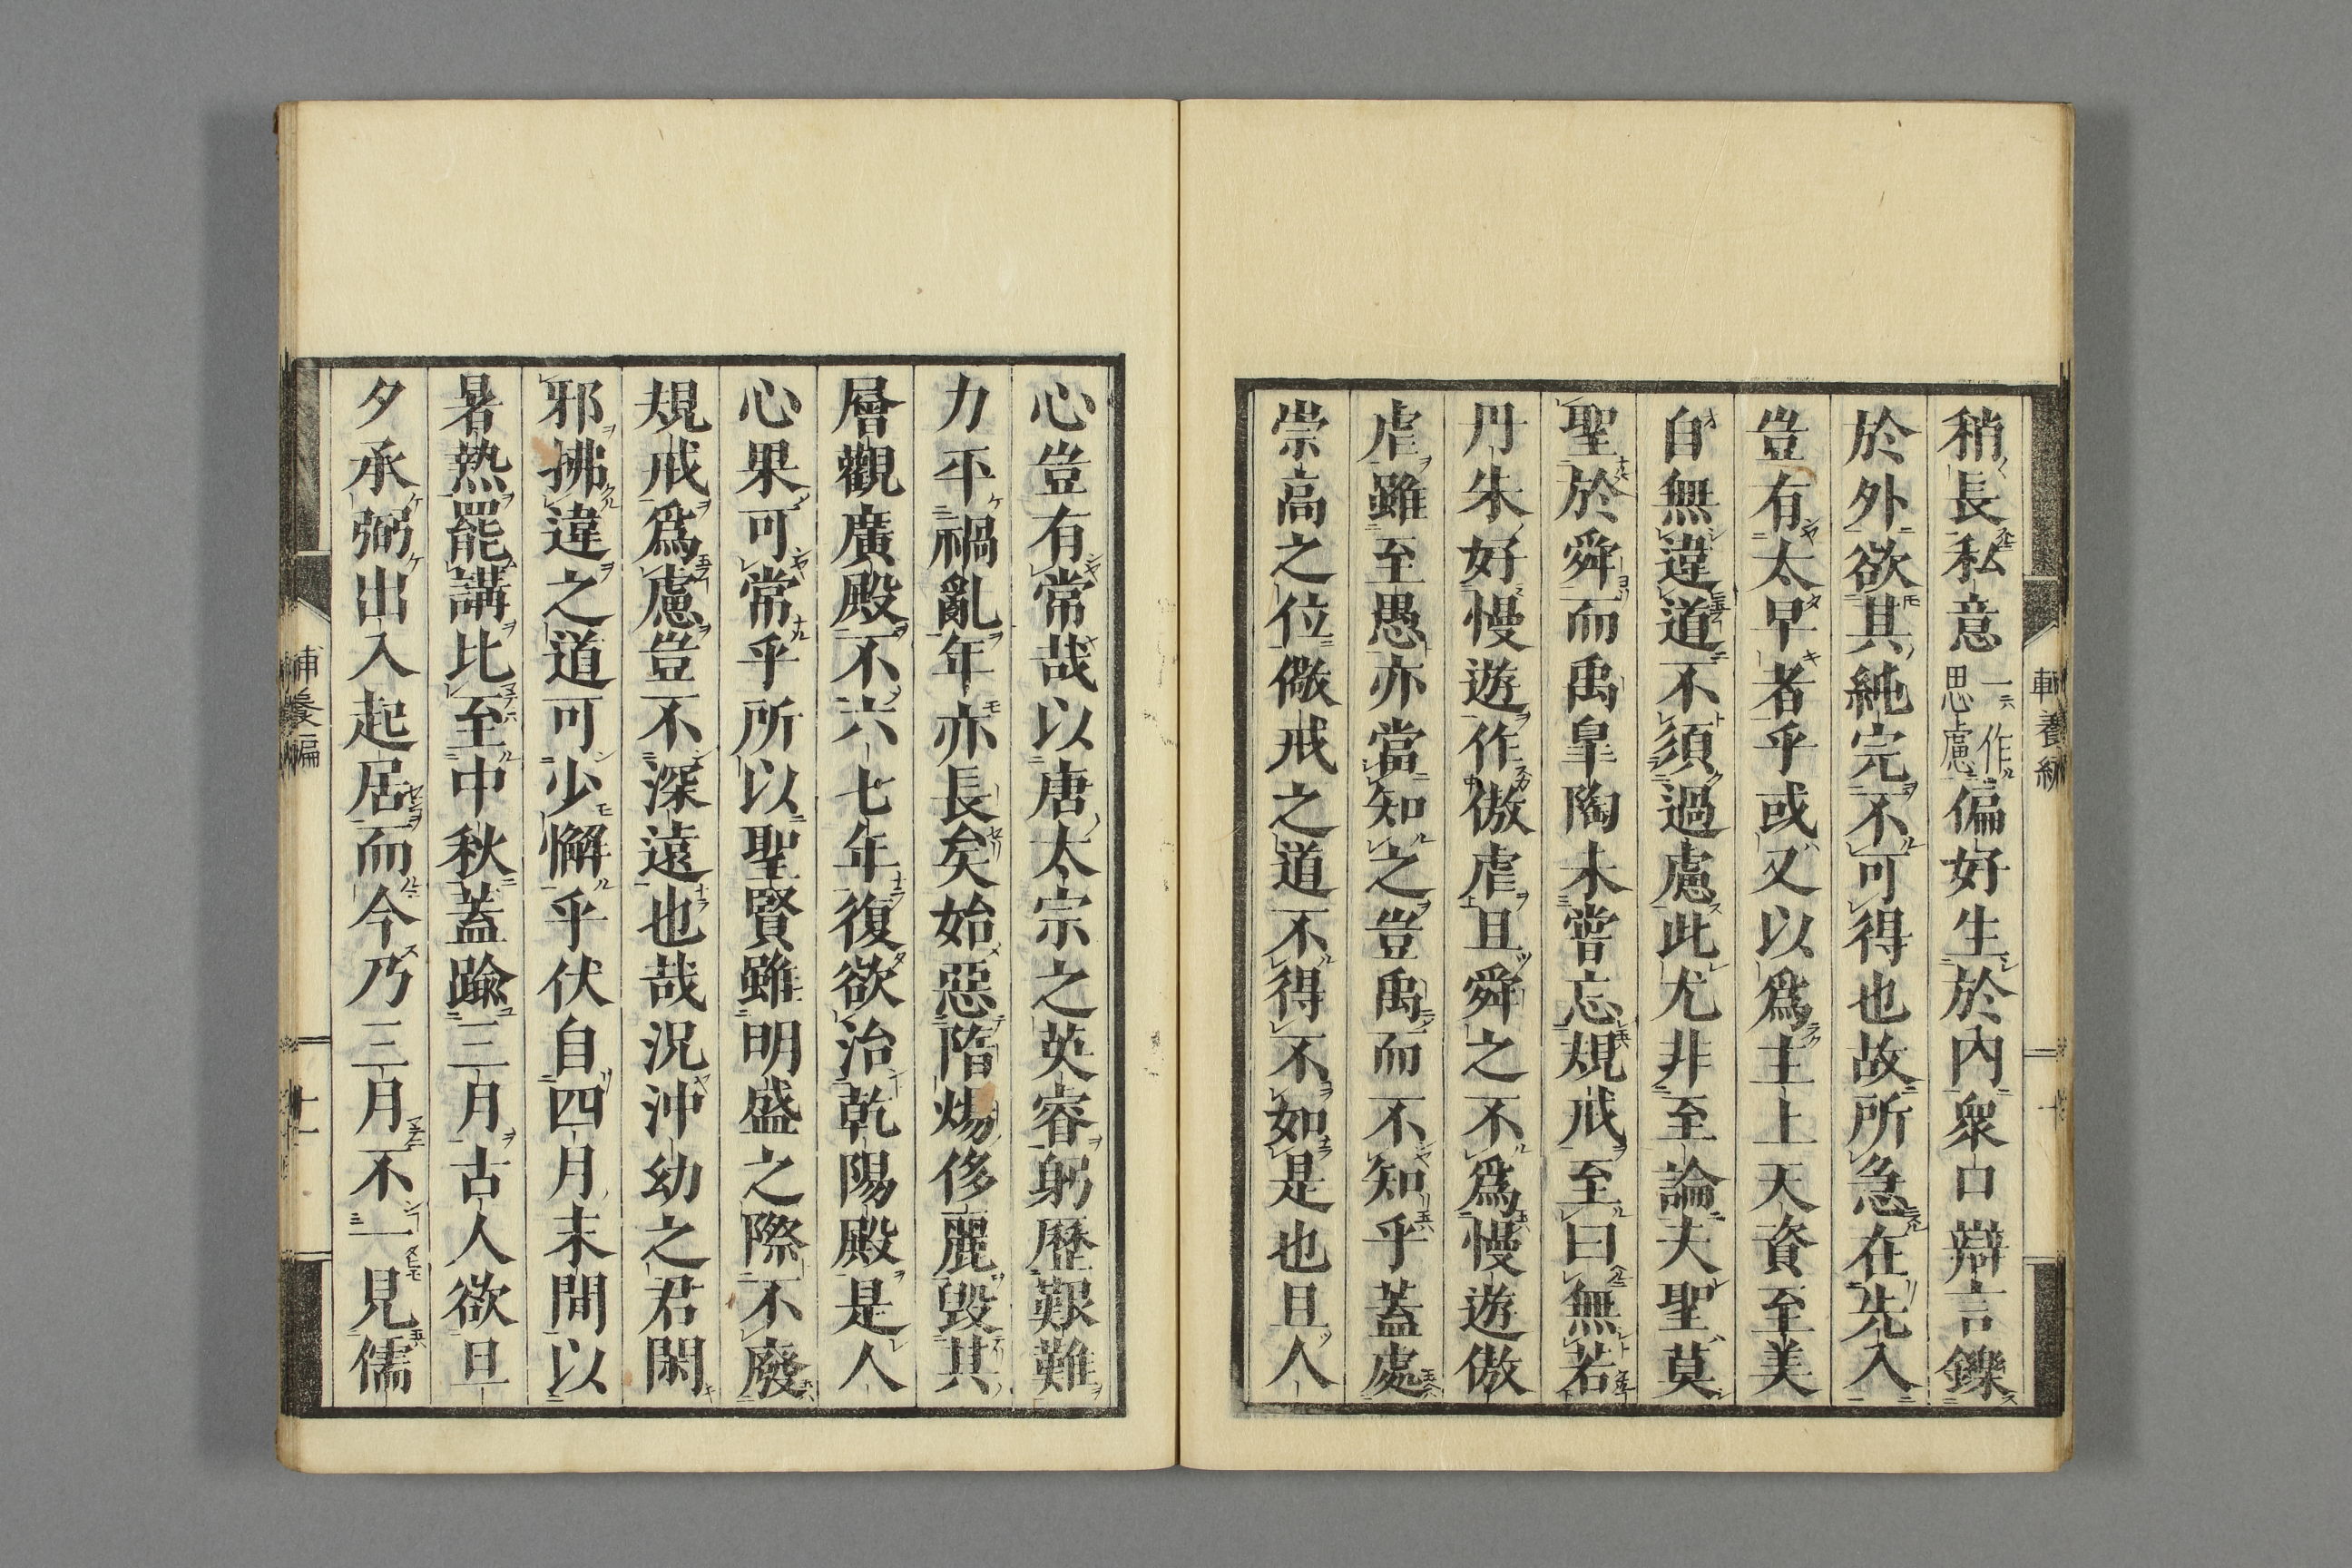 稍長私意一作思慮偏好生於內衆口辯言鑠
於外欲其純完不可得也故所急在先入
豈有太早者乎或又以爲主上天資至美
自無違道不須過慮此尤非至論夫聖莫
聖於舜而禹皐陶未嘗忘規戒至曰無若
丹朱好慢遊作傲虐且舜之不爲慢遊傲
虐雖至愚亦當知之豈禹而不知乎蓋處
崇高之位儆戒之道不得不如是也且人
心豈有常哉以唐太宗之英睿躬歷艱難
力平禍亂年亦長矣始惡隋煬侈麗毀其
層觀廣殿不六七年復欲治乾陽殿是人
心果可常乎所以聖賢雖明盛之際不廢
規戒爲慮豈不深遠也哉況沖幼之君閑
邪拂違之道可少懈乎伏自四月末間以
暑熱罷講比至中秋蓋踰三月古人欲旦
夕承弼出入起居而今乃三月不一見儒
養編